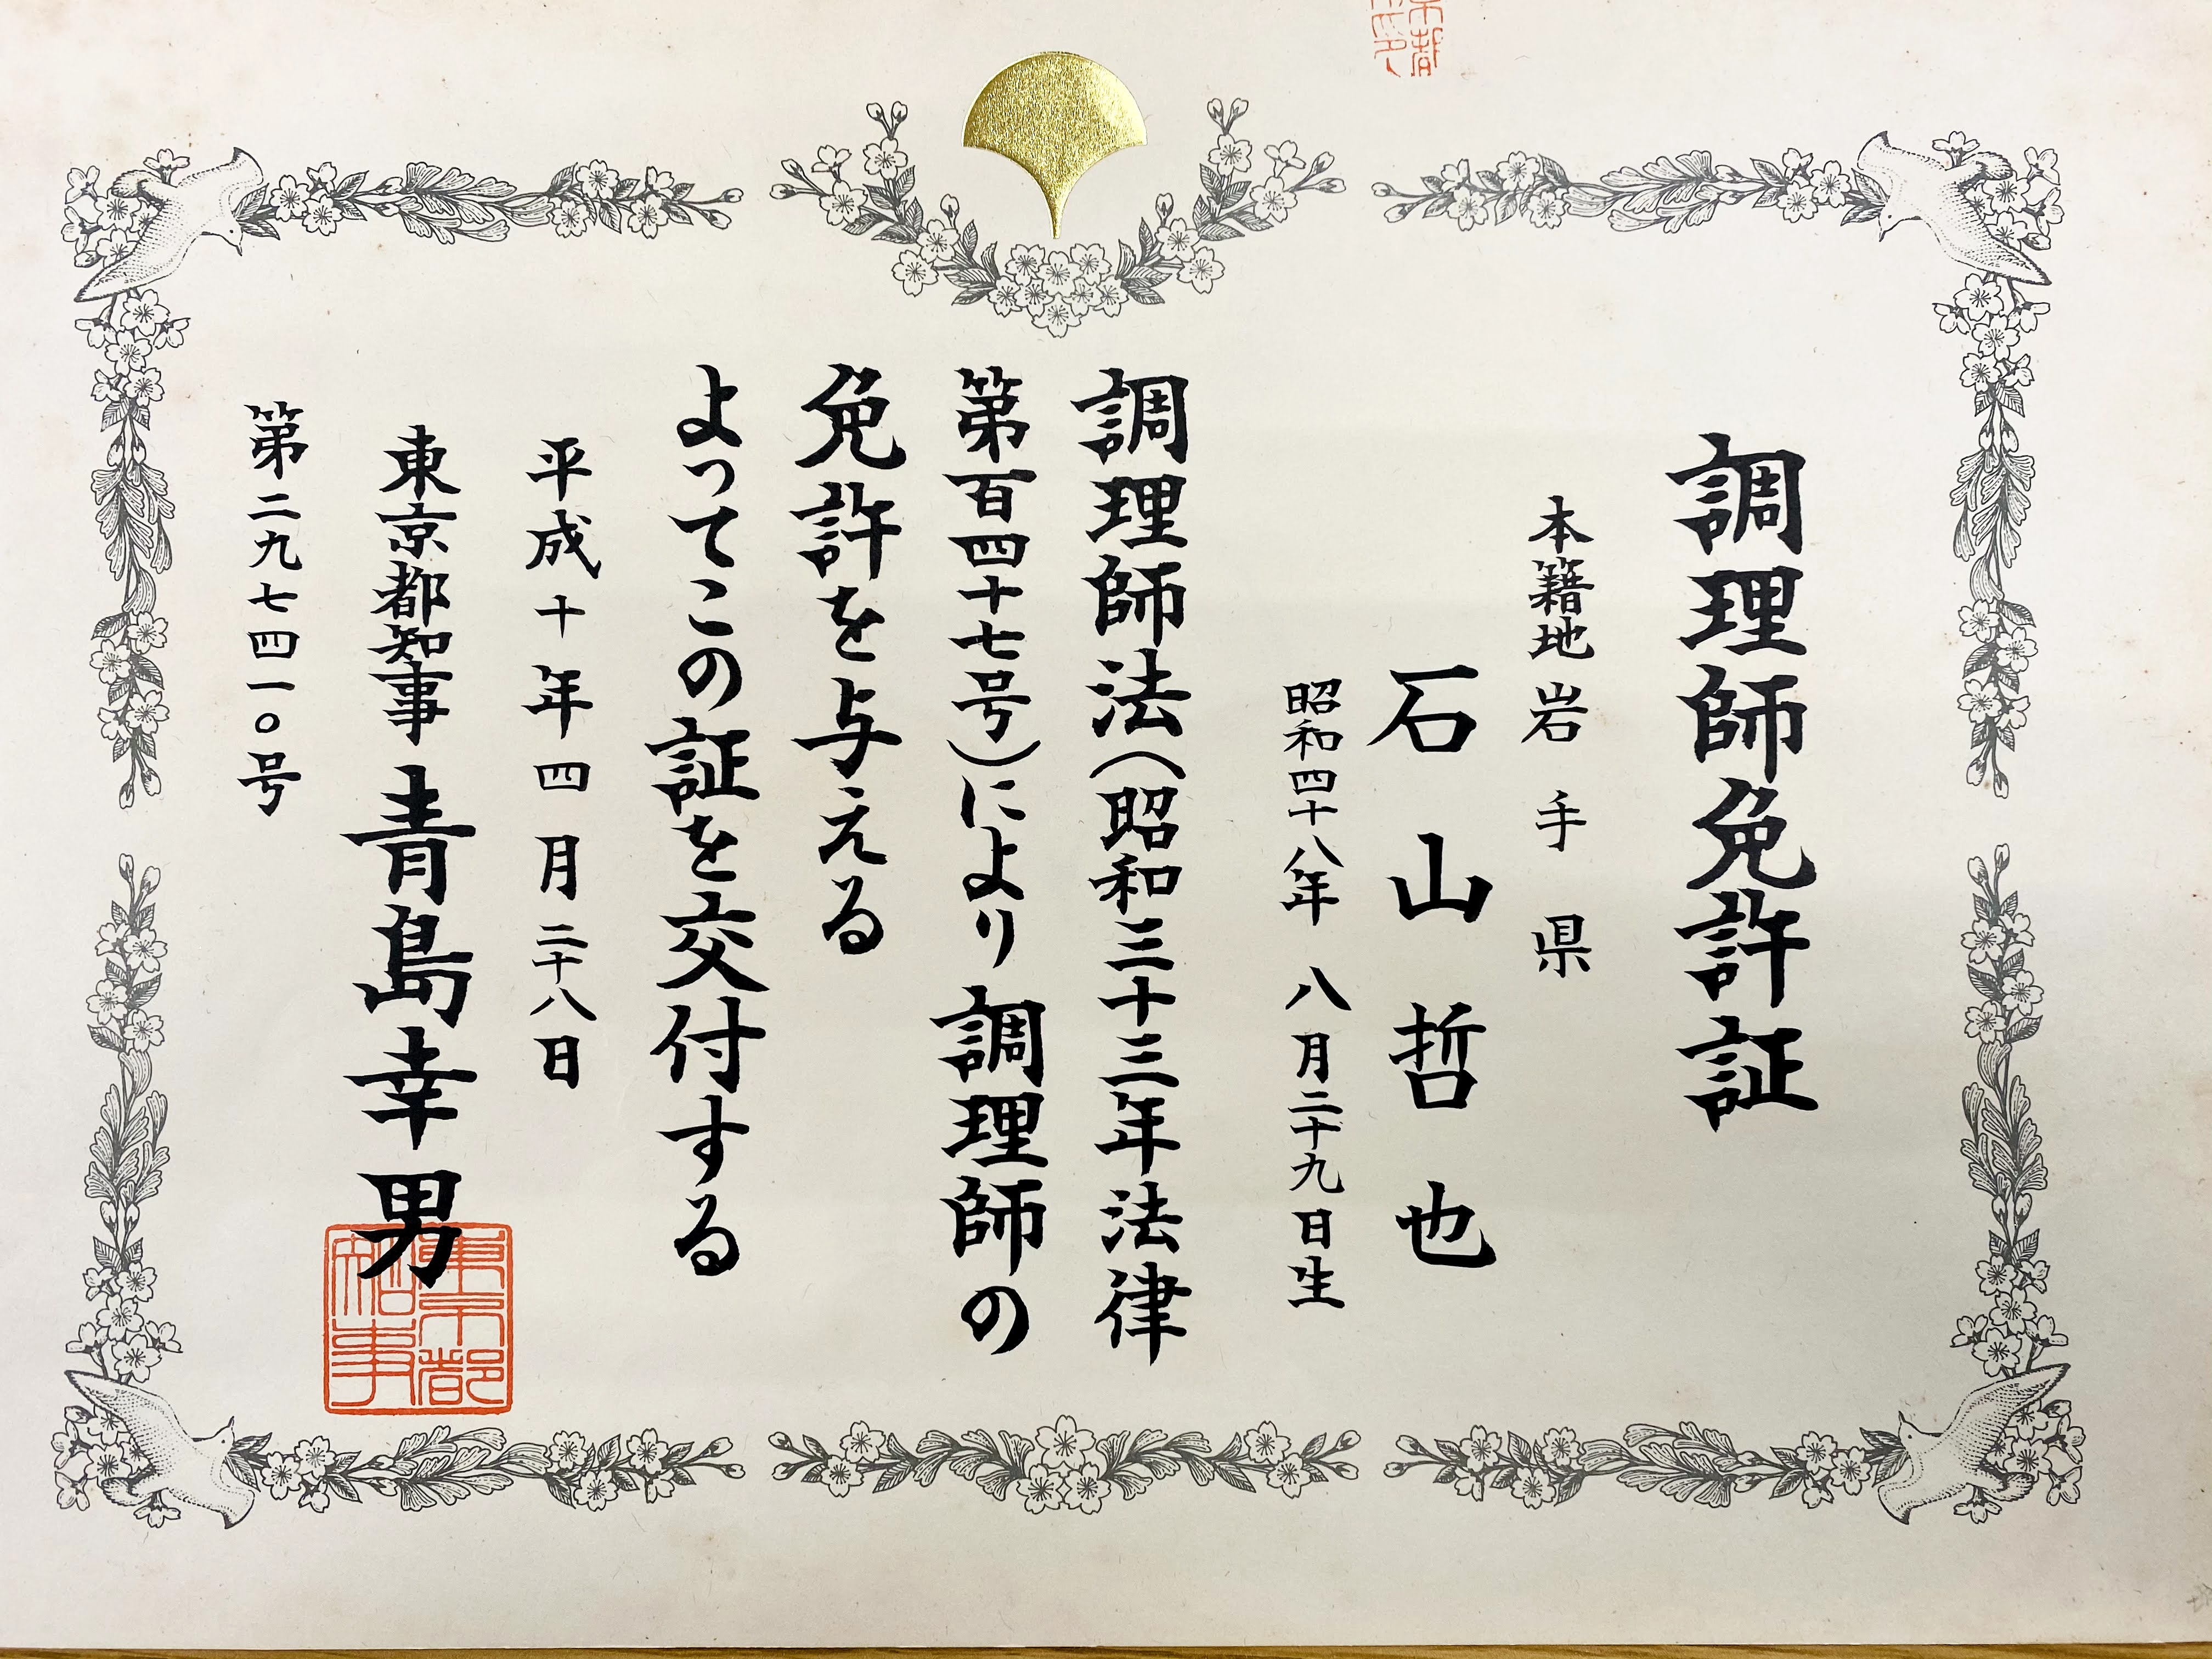 調理師免許証
本籍地 岩手県
石山哲也
昭和四十八年 八月二十九日生
調理師法(昭和三十三年法律
第百四十七号)により調理師の
免許を与える
よってこの証を交付する
平成十年四月二十八日
東京都知事 青島幸男
東京都知事
第二九七四一〇号